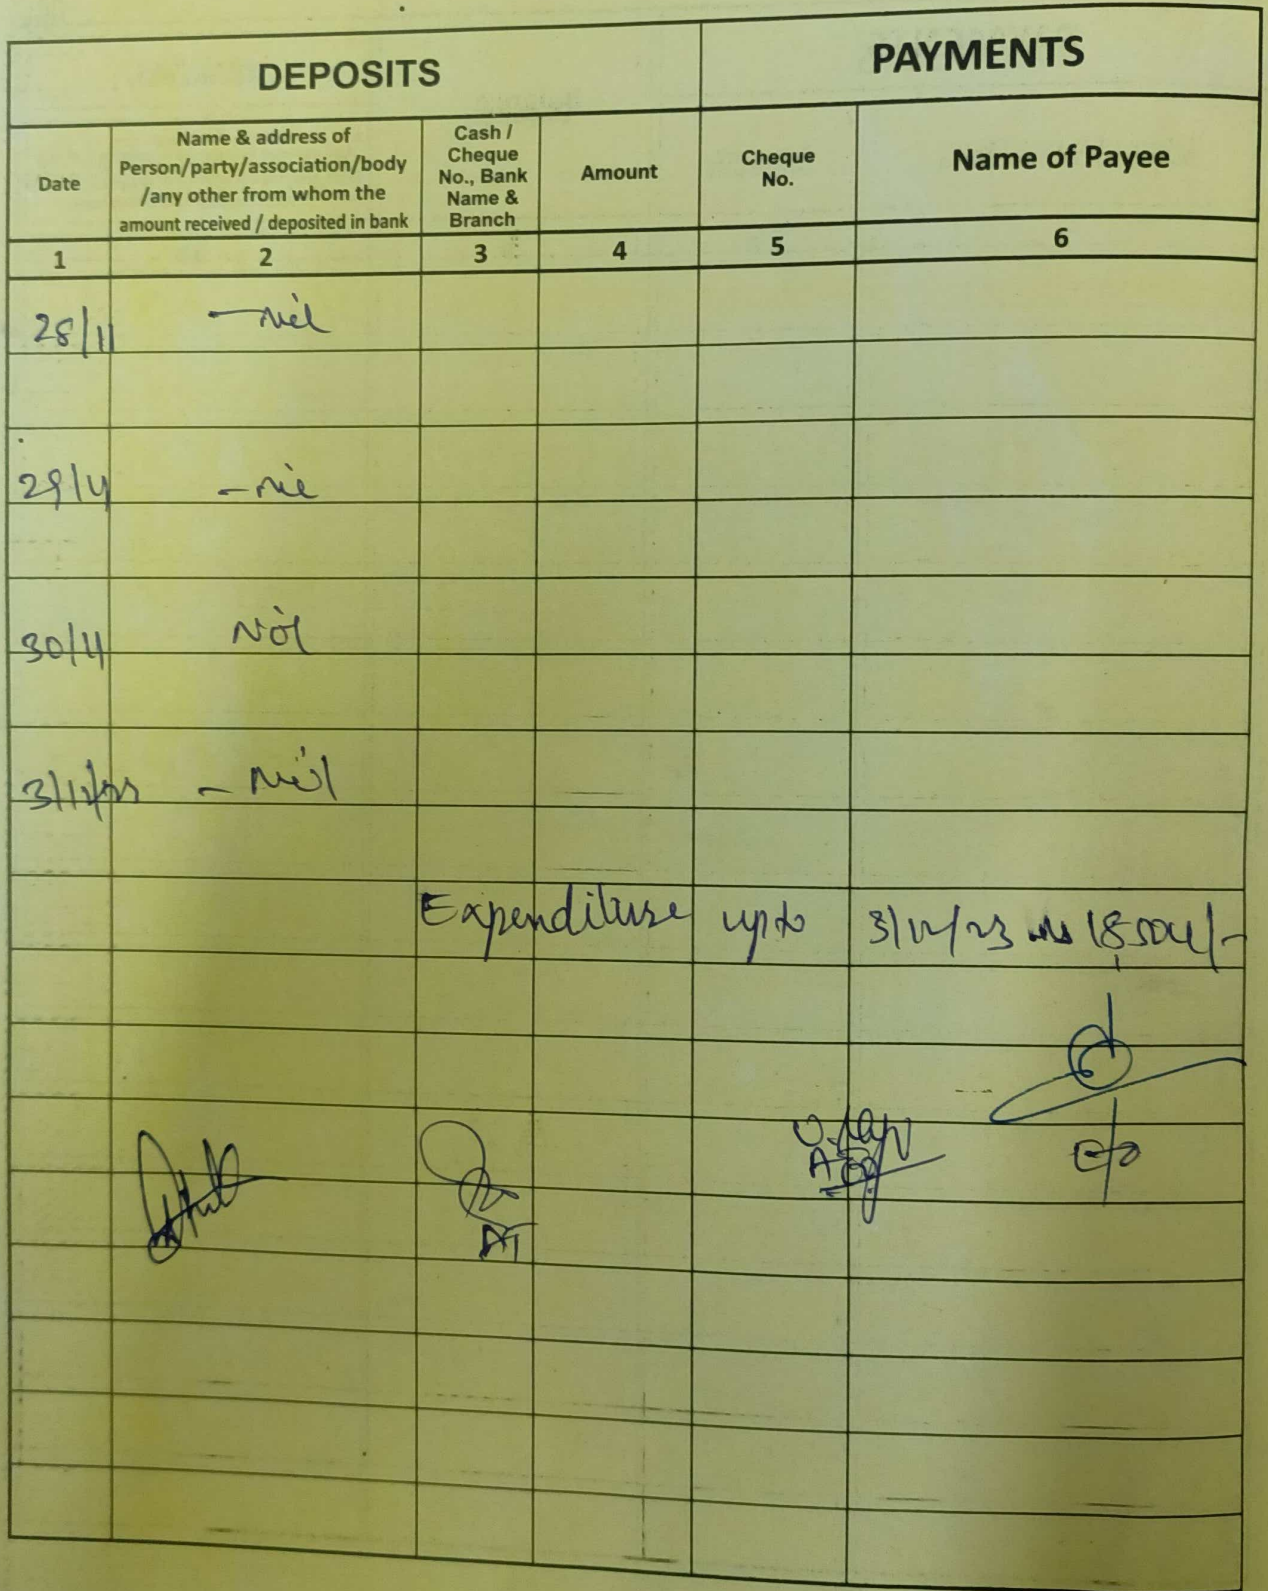 DEPOSITS PAYMENTS
Date Name & address of Person/party/association/body /any other from whom the amount received / deposited in bank Cash / Cheque No., Bank Name & Branch Amount Cheque No. Name of Payee
1 2 3 4 5 6
28/11 - Nil
29/11 - Nil
30/11 Nil
3/12/23 - Nil
Expenditure upto 3/12/23
AT